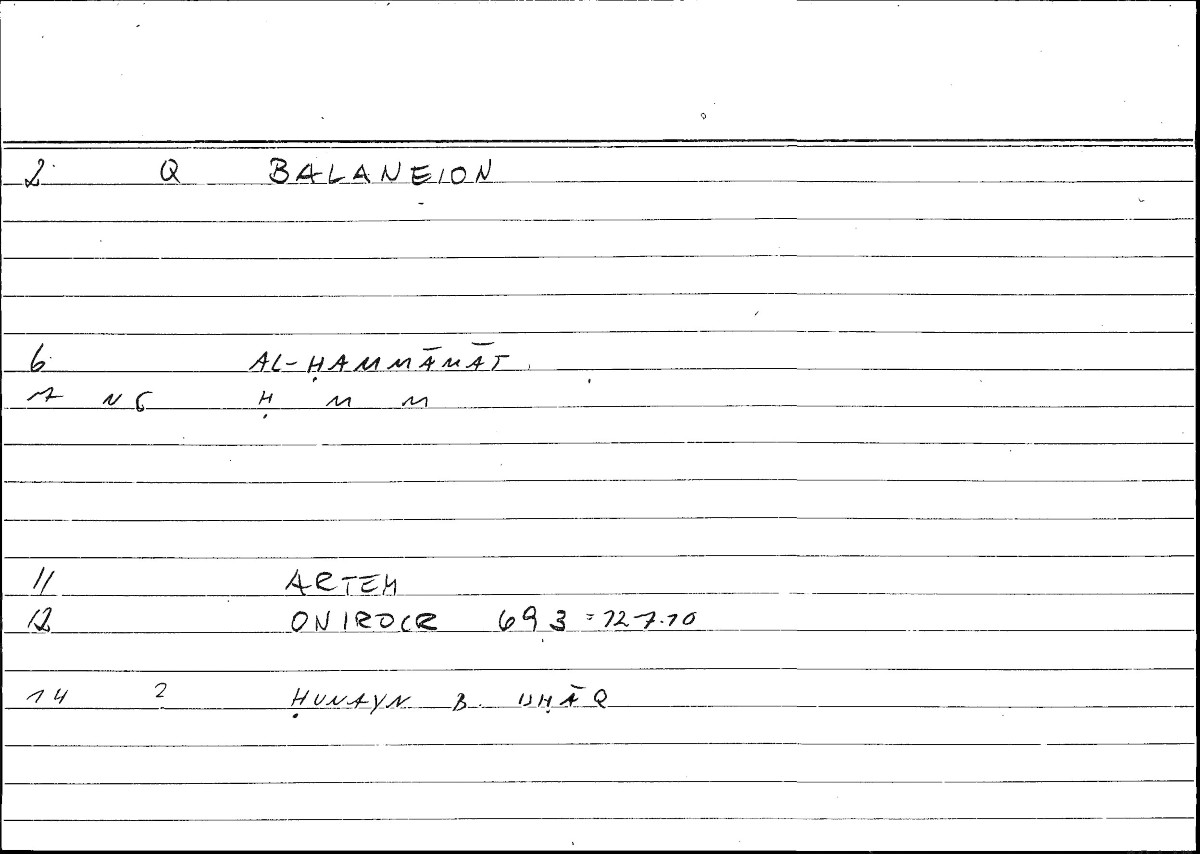 2 Q BALANEION
6 AL-ḤAMMĀMĀT
7 NG Ḥ M M
11 ARTEM
12 ONIROCR 693 = 127.10
14 2 ḤUNAYN B. ISḤĀQ